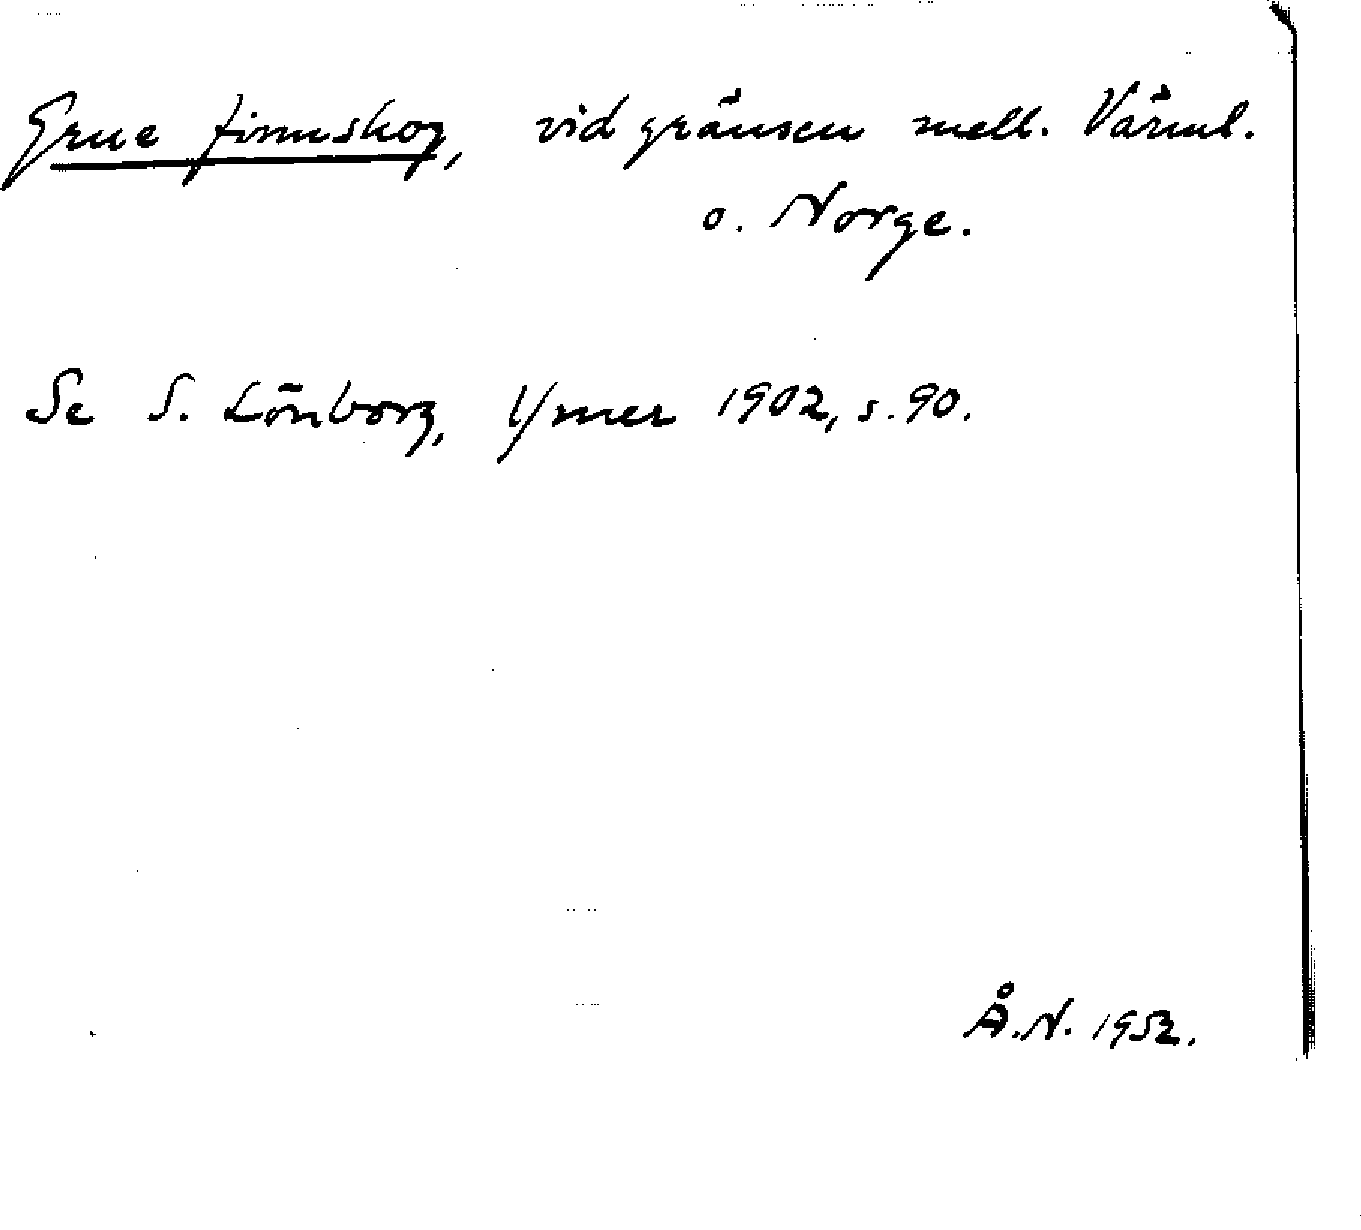 Grue finnskog, vid gränsen mell. Värml.
o. Norge.
Se S. Lönborg, Ymer 1902, s. 90.
Å.N. 1952.